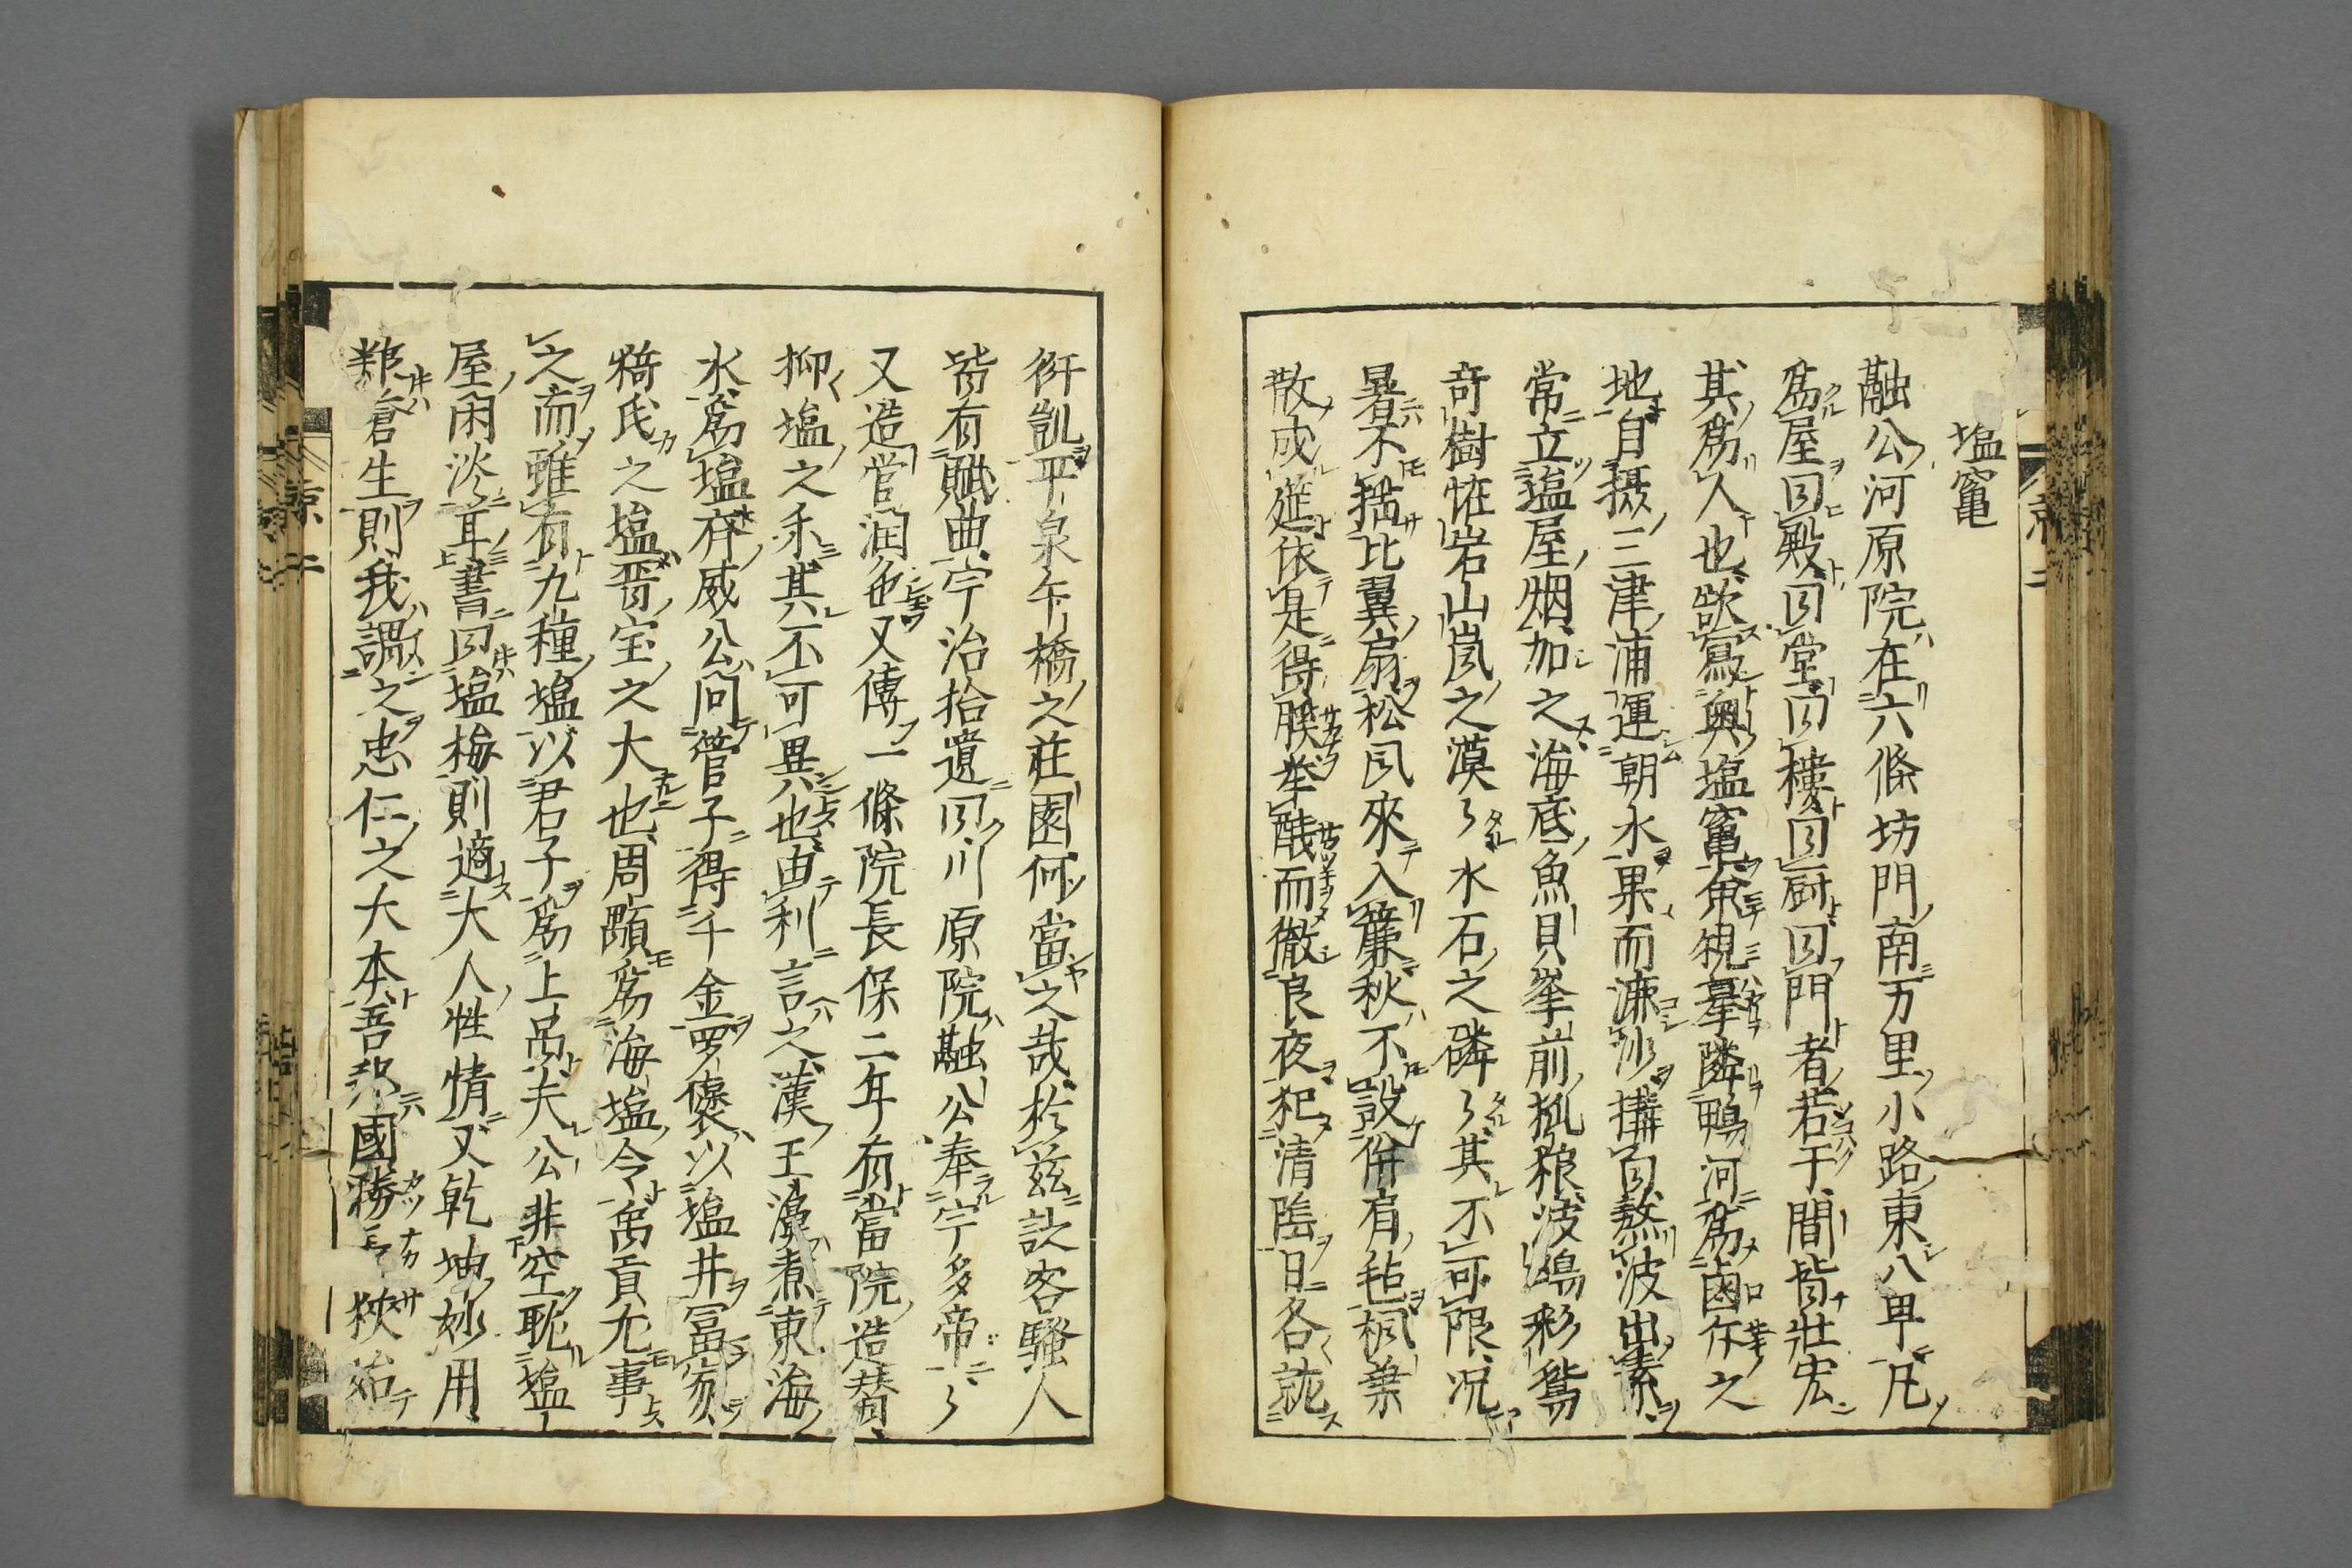 塩竃
融公河原院在六條坊門南万里小路東八甲凡
爲屋曰殿曰堂曰樓曰厨曰門者若干間皆壮宏
其爲人也欲寫奥塩竃角鴨河爲鹵
地自摂三津浦運朝水果而漉沙搆自熬波出素
常立塩屋烟加之海底魚貝峯前狐狼波嶋彩鴛
奇樹恠岩山嵐之漠々水石之磷々其不可限况
暑不揺比翼扇松風來入簾秋不設併肩毡桐葉
散成莚依是得朕而徹良夜犯清陰日各就
衎凱平泉午橋之荘園何當之哉於茲訟客騒人
皆有賦曲宇治拾遺曰川原院融公奉宇多帝々
又造営潤色又傳一條院長保二年有當院造替
抑塩之系其不可異也由利言之漢王濞煮東海
水爲塩齊威公問管子得千金羅褒以塩井冨家
猗氏之塩晋宝之大也周顒爲海塩令禹貢允事
之而雖有九種塩以君子爲上品夫公非空耽塩
屋閑淡耳書曰塩梅則適大人性情又乾坤妙用
都倉生則我謂之忠仁之大本吾國務